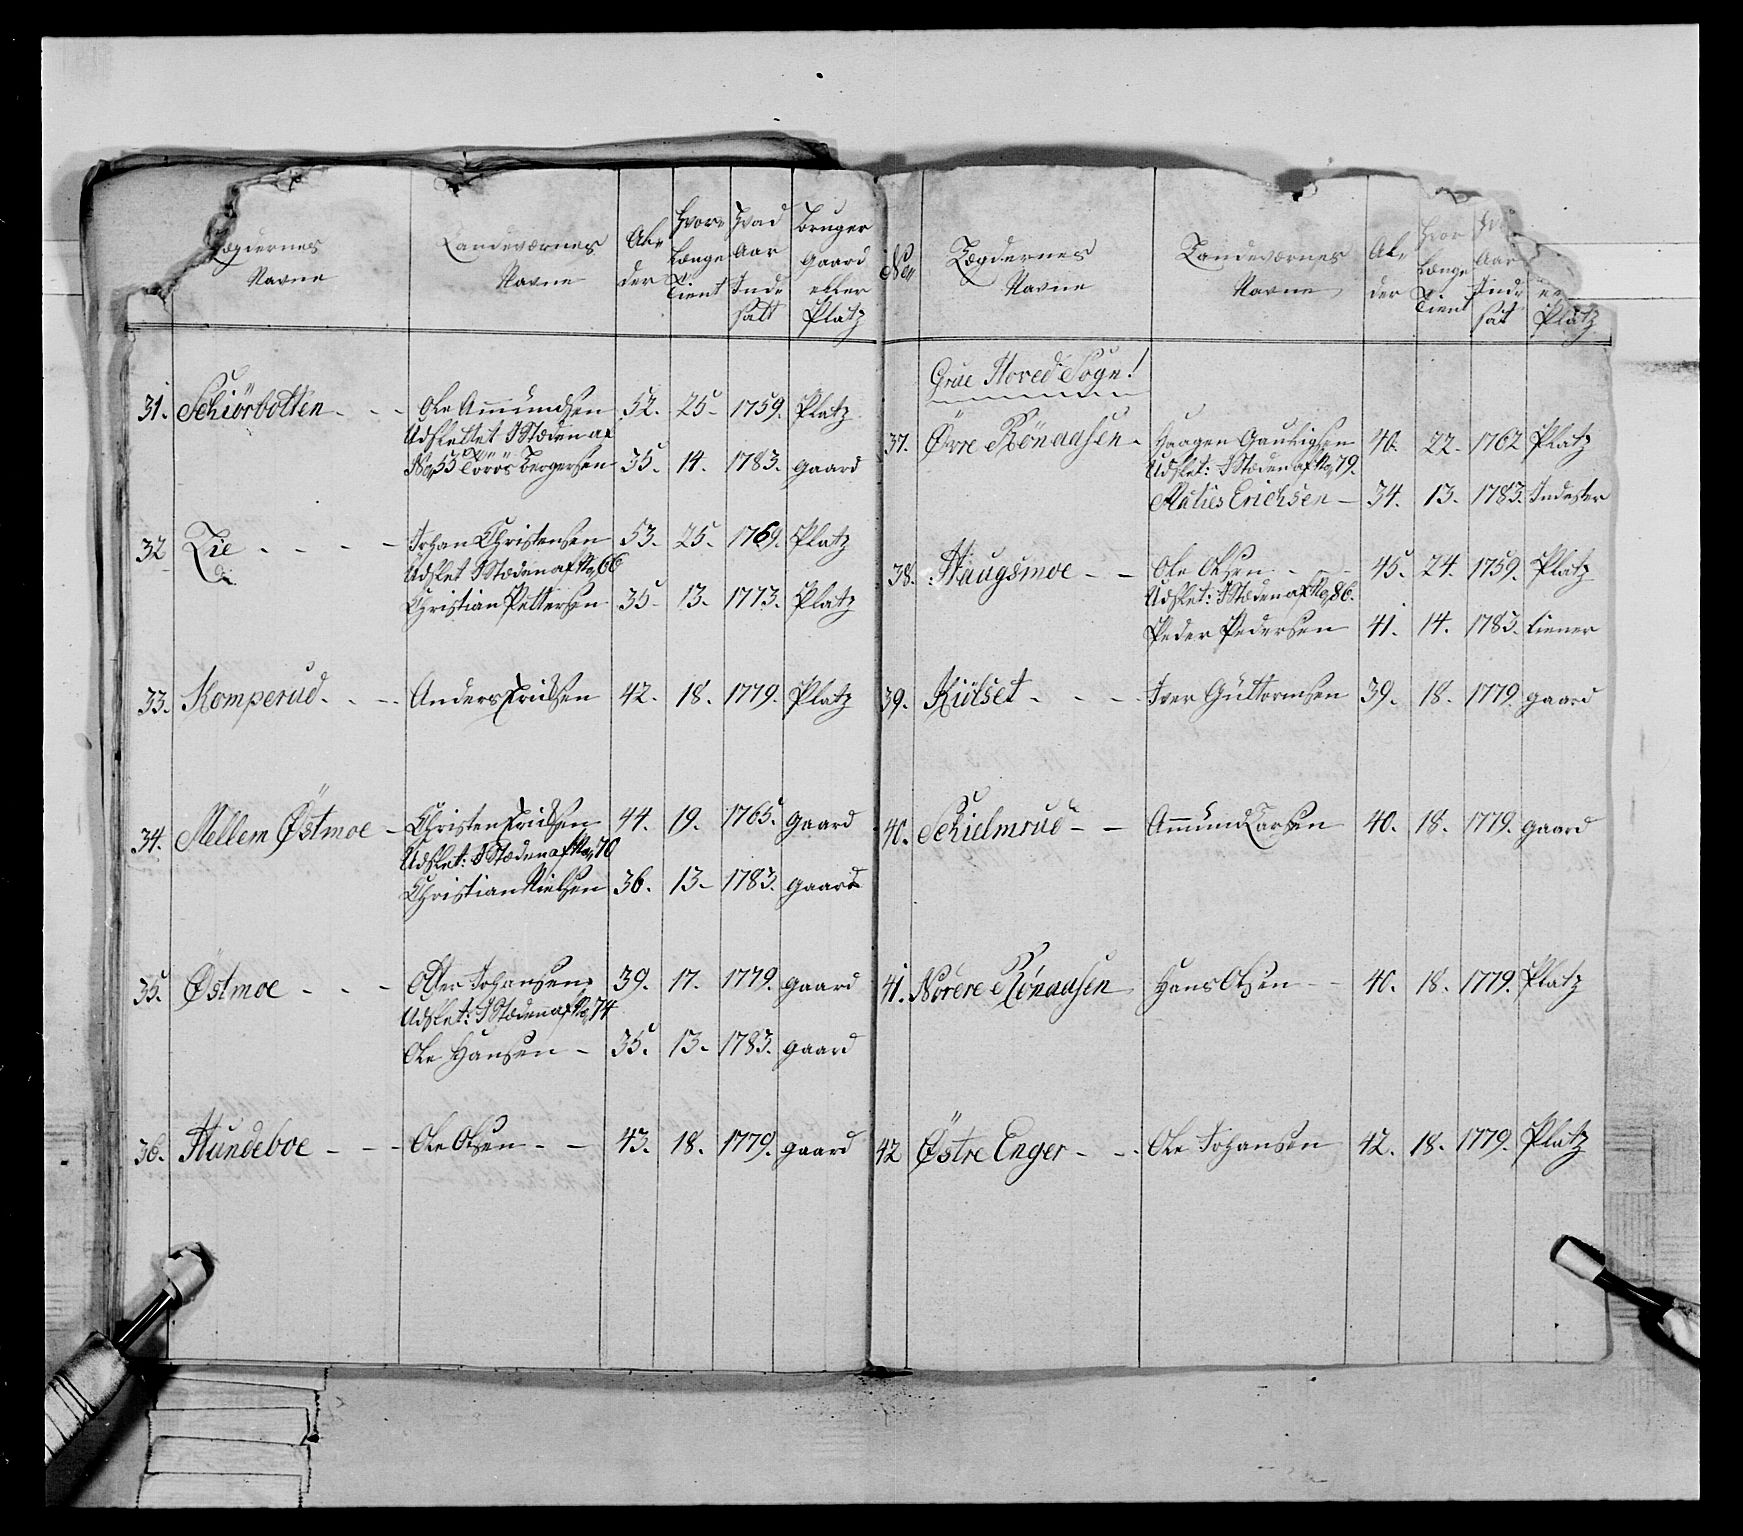 Lægdernes Navne | Landeværnes Navne | Al- der | Hvor Længe Tient | Hvad Aar Ind- satt | Bruger gaard eller Platz
31. Schiörbotten - - - Ole Ammundsen 52. 25- 1759. Platz
Udslettet I Stæden af
No 55 Törös Bergersen 35. 14. 1783. gaard
32 Lie - - - - Johan Christensen 53. 25. 1769. Platz
Udslet I Stæden af No 66
Christian Pettersen 35- 13. 1773. Platz
33. Komperud - - - Anders Erichsen 42. 18. 1779. Platz
34. Mellem Östmoe - Christen Erichsen 44. 19. 1765. gaard
Udslet: I Stæden af No 70
Christian Nielsen 36. 13- 1783. gaard
35. Østmoe - - - Johansen 39. 17. 1779. gaard
Udslet: I Stæden af No 74
Ole Hansen - 35. 13- 1783. gaard
36. Hundeboe - - - Ole Olsen - - 43. 18. 1779. gaard
No | Lægdernes Navne | Landeværnes Navne | Al- der | Hvor Længe Tient | Aar Ind- sat | Platz
Grue Hoved Sogn!
37. Øvre Rönaasen - Haagen 40. 22. 1762 Platz
Udslet: I Stæden af No 79.
Maties Erichsen - 34. 13. 1783. Inderster
38. Haugsmoe - - Ole Olsen - - 45. 24. 1759. Platz
Udslet: I Stæden af No 86.
Peder Pedersen 41. 14. 1783. tiener
39. Kiölset - - - Iver Guttormsen 39. 18. 1779. gaard
40. Schielmrud - - Ammund Larsen 40. 18. 1779. gaard
41. Norere Rönaasen Hans Olsen - - 40. 18. 1779. Platz
42 Östre Enger - - Ole Johansen 42. 18. 1779. Platz